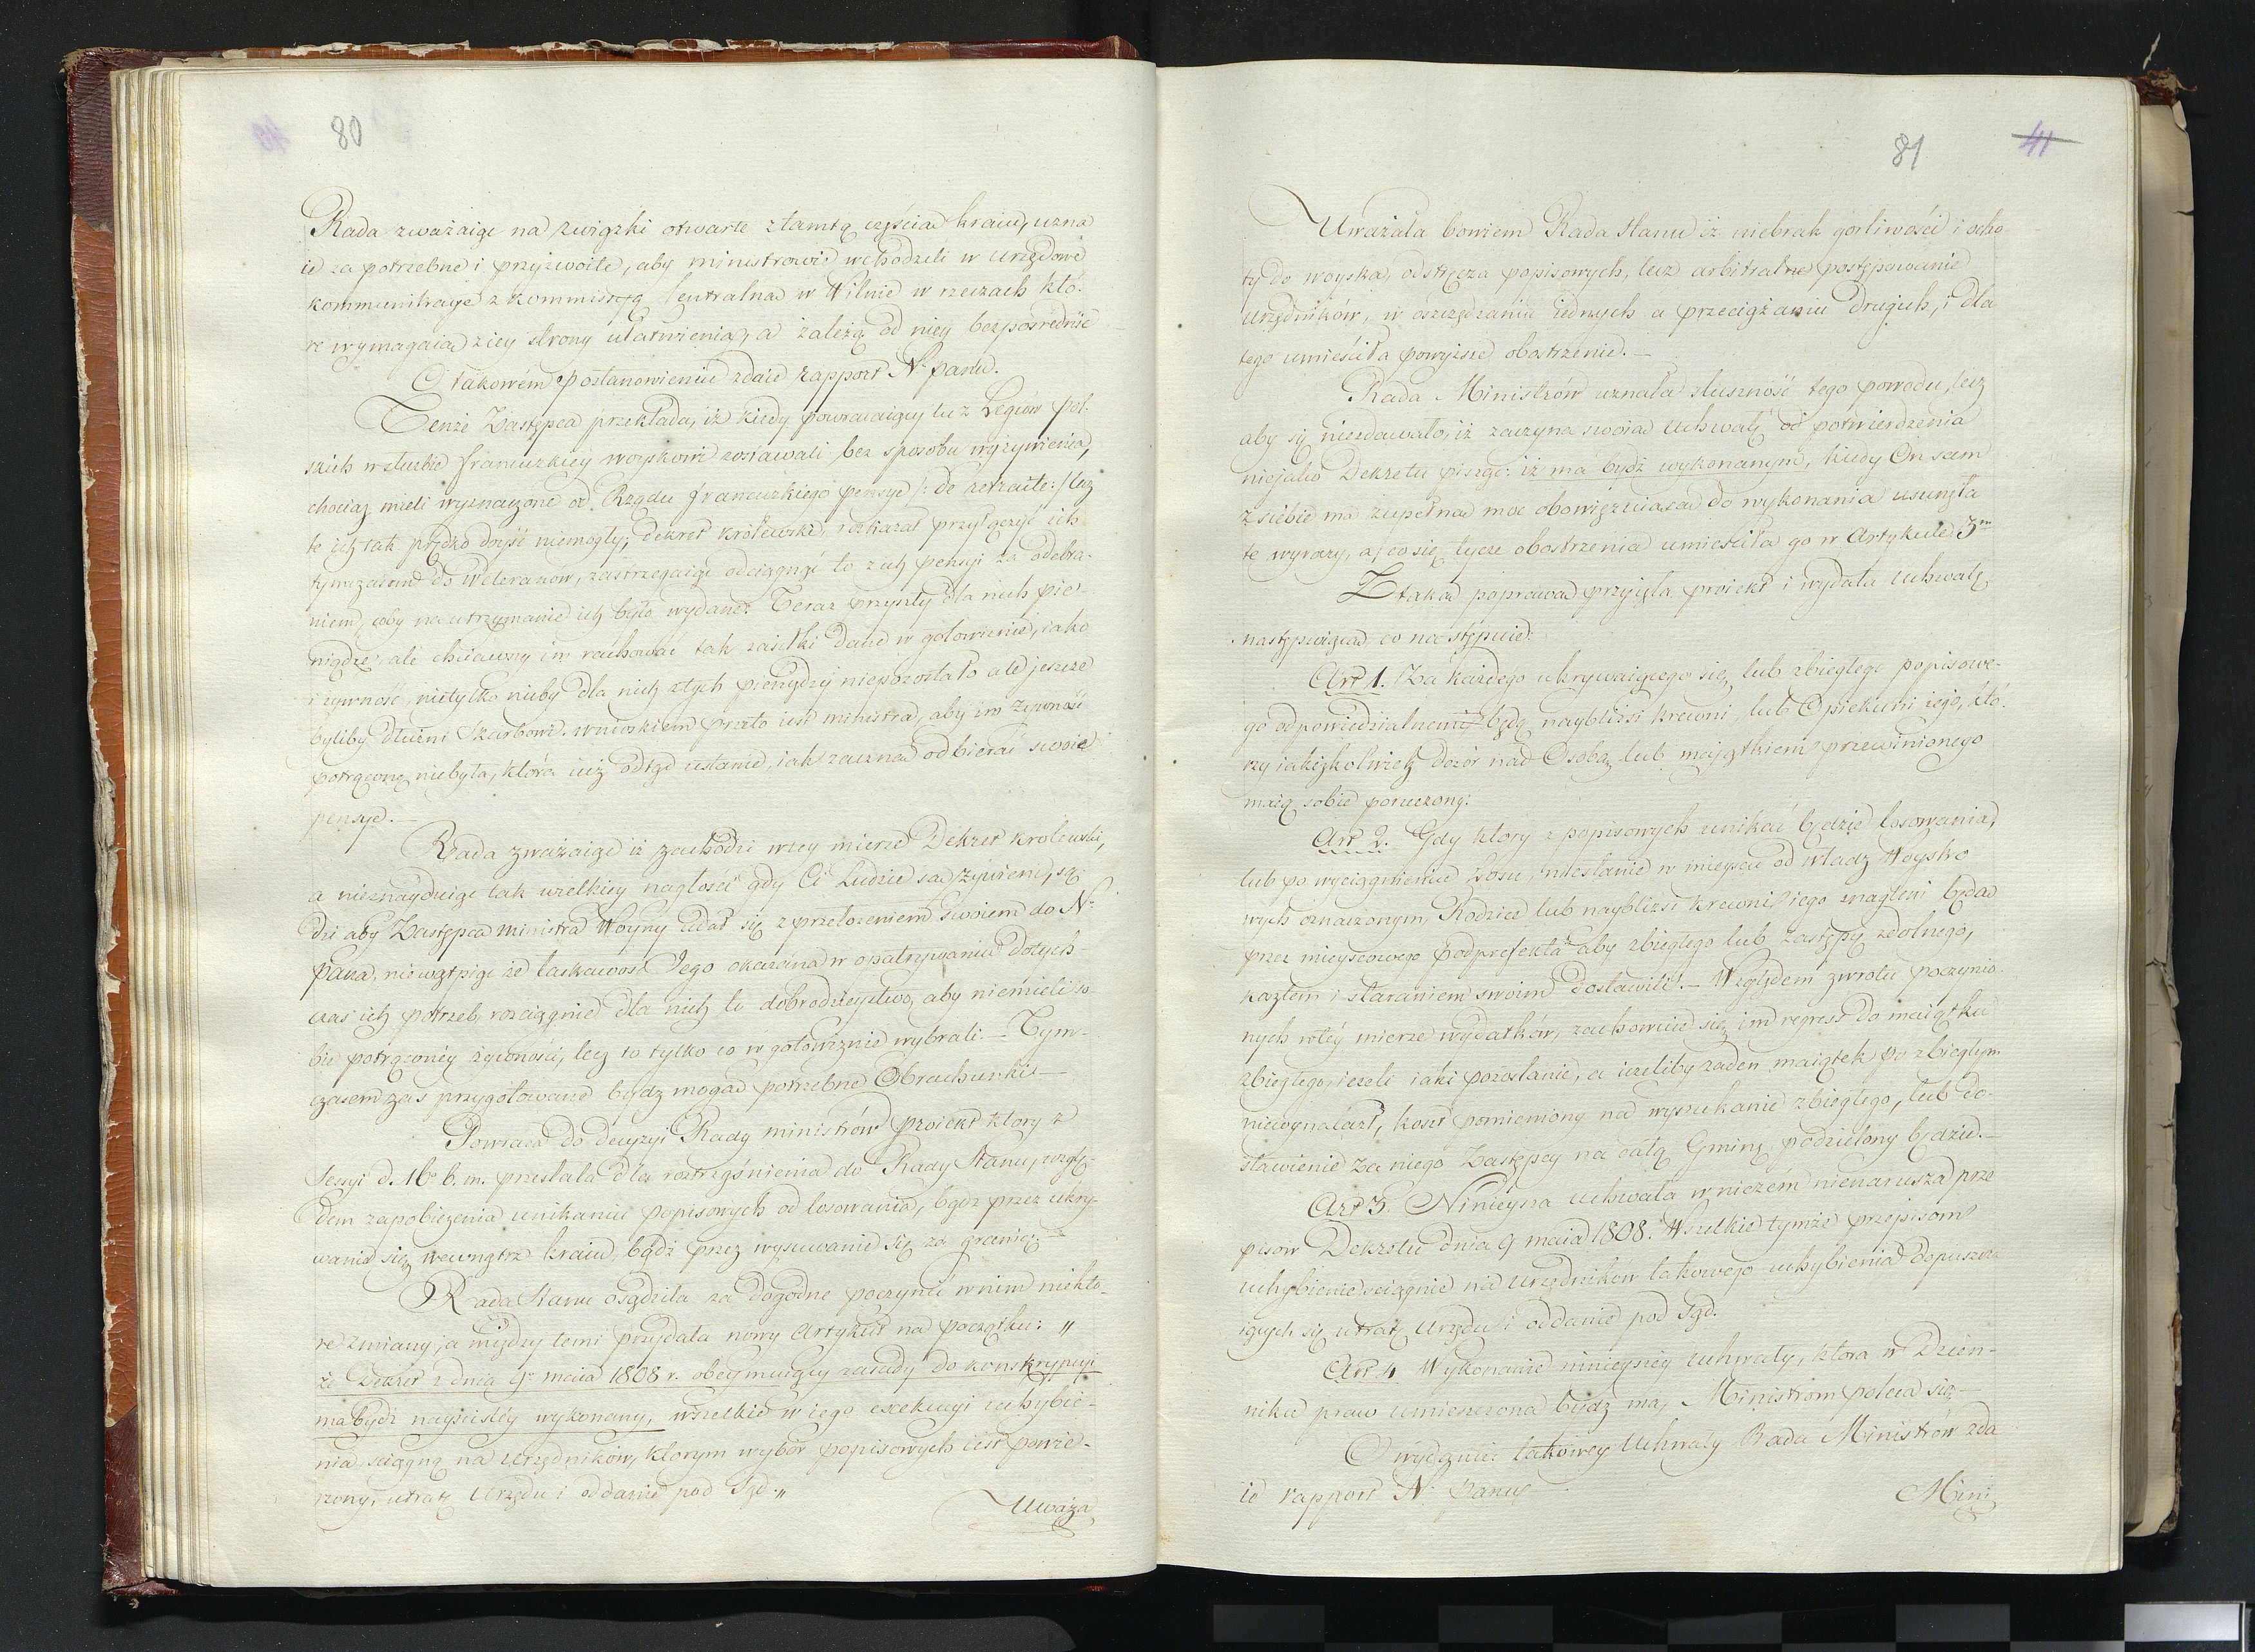 80
Rada zważaiąc na związki otwarte z tamtą częścią kraiu, uzna
ie za potrzebne i przyzwoite, aby ministrowie wchodzili w urzędowe
kommunikacye z kommissyą Centralną w Wilnie w rzeczach któ-
re wymagaią z iey strony ułatwienia, a zależą od niey bezpośrednie
O takowém postanowieniu zdaie rapport N. panu.
Tenże Zastępca przekłada, iż kiedy powracaiący tu z Legiow pol-
skich w służbie francuzkiey woyskowi zostawali bez sposobu wyżywienia,
chociaż mieli wyznaczone od Rządu francuzkiego pensye /: de retraite :/ lecz
te ich tak prędko doyść niemogły; dekret królewski, rozkazał przyłączyć ich
tymczasem do Weteranów, zastrzegaiąc odciągnąć to z ich pensyi za odebra-
niem, coby na utrzymanie ich było wydane: Teraz przyszły dla nich pie-
niądze, ale chciawszy im rachować tak zasiłki dane w gotowiznie, iako
i żywność, nietylko nicby dla nich z tych pieniędzy niepozostało ale jeszcze
byliby dłużni Skarbowi. wnioskiem przeto iest ministra, aby im żywność
potrąconą niebyła, która iuż odtąd ustanie, iak zaczną odbierać swoie
pensye.—
Rada zważaiąc iż zachodzi w tey mierze Dekret królewski,
a nieznayduiąc tak wielkiey nagłości gdy Ci Ludzie są żywieni, są-
dzi aby Zastępca ministra Woyny udał się z przełożeniem swoiem do N.
pana, niewątpiąc że łaskawość Jego okazana w opatrywaniu dotych-
czas ich potrzeb, rozciągnie dla nich to dobrodzieystwo, aby niemieli so-
bie potrąconéy żywności, lecz to tylko co w gotowiznie wybrali.— Tym-
czasem zaś przygotowane bydz mogą potrzebne Obrachunki.—
Powraca do decyzyi Rady ministrów proiekt ktory z
Sessyi d. 16. b. m. przesłała dla roztrząśnienia do Rady Stanu, wzglę-
dem zapobieżenia unikaniu popisowych od losowania, bądz przez ukry-
wanie się wewnątrz kraiu, bądź przez wysuwanie się za granicę.—
Rada Stanu osądziła za dogodne poczynić w nim niektó-
re zmiany, a między temi przydała nowy Artykuł na początku: „
że Dekret z dnia 9. maia 1808 r. obeymuiący zasady do konskrypcyi
ma bydź nayściśléy wykonany, wszelkie w iego exekucyi uchybie-
nia, ściągną na urzędników, ktorym wybór popisowych iest powie-
rzony, utratę Urzędu i oddanie pod Sąd.„
Uważa
81
41
Uważała bowiem Rada Stanu iż niebrak gorliwości i ocho-
ty do woyska, odstręcza popisowych, lecz arbitralne postępowanie
urzędników, w oszczędzaniu iednych a przeciążaniu drugich, i dla
tego umieściła powyższe obostrzenie.—
Rada Ministrów uznała słuszność tego powodu, lecz
aby się niezdawało, iż zaczyna swoią uchwałę od potwierdzenia
nieiako Dekretu pisząc: iż ma bydź wykonanym, kiedy On sam
z siebie ma zupełną moc obowiązuiącą do wykonania usunęła
te wyrazy, a co się tycze obostrzenia umieściła go w Artykule 3m
Z taką poprawą przyięła proiekt i wydała uchwałę
następuiącą co nastêpuie:
Art 1. Za każdego ukrywaiącego się lub zbiegłego popisowe-
go odpowiedzialnemi będą naybliżsi krewni, lub Opiekuni iego, któ-
rzy iakiżkolwiek dozór nad Osobą lub maiątkiem przewinionego
maią sobie poruczony.
Art 2. Gdy ktory z popisowych unikać będzie losowania,
lub po wyciągnieniu Losu, niestanie w mieyscu od władz Woysko
wych oznaczonym, Rodzice lub naybliżsi krewni iego nagleni będą
przez mieyscowego podprefekta aby zbiegłego lub zastępcę zdolnego,
kosztem i staraniem swoim dostawili.— Względem zwrotu poczynio-
nych w téy mierze wydatków, zachowuie się im regress do maiątku
zbiegłego, ieżeli iaki pozostanie, a ieżeliby żaden maiątek po zbiegłym
niewynalazł, koszt pomieniony na wyszukanie zbiegłego, lub do-
stawienie za niego Zastępcy na całą Gminę podzielony będzie.—
Art 3. Ninieysza uchwała w niczém nienarusza prze
pisow Dekretu dnia 9 maia 1808. Wszelkie tymże przepisom
uchybienie ściągnie na urzędników takowego uchybienia dopuszcza
iących się utratę Urzędu i oddanie pod Sąd.
Art 4 Wykonanie ninieyszey uchwały, ktora w Dzien-
niku praw umieszczona bydz ma, Ministrom poleca się.—
O wydaniu takowey Uchwały Rada Ministrów zda
ie rapport N. Panu
Mini